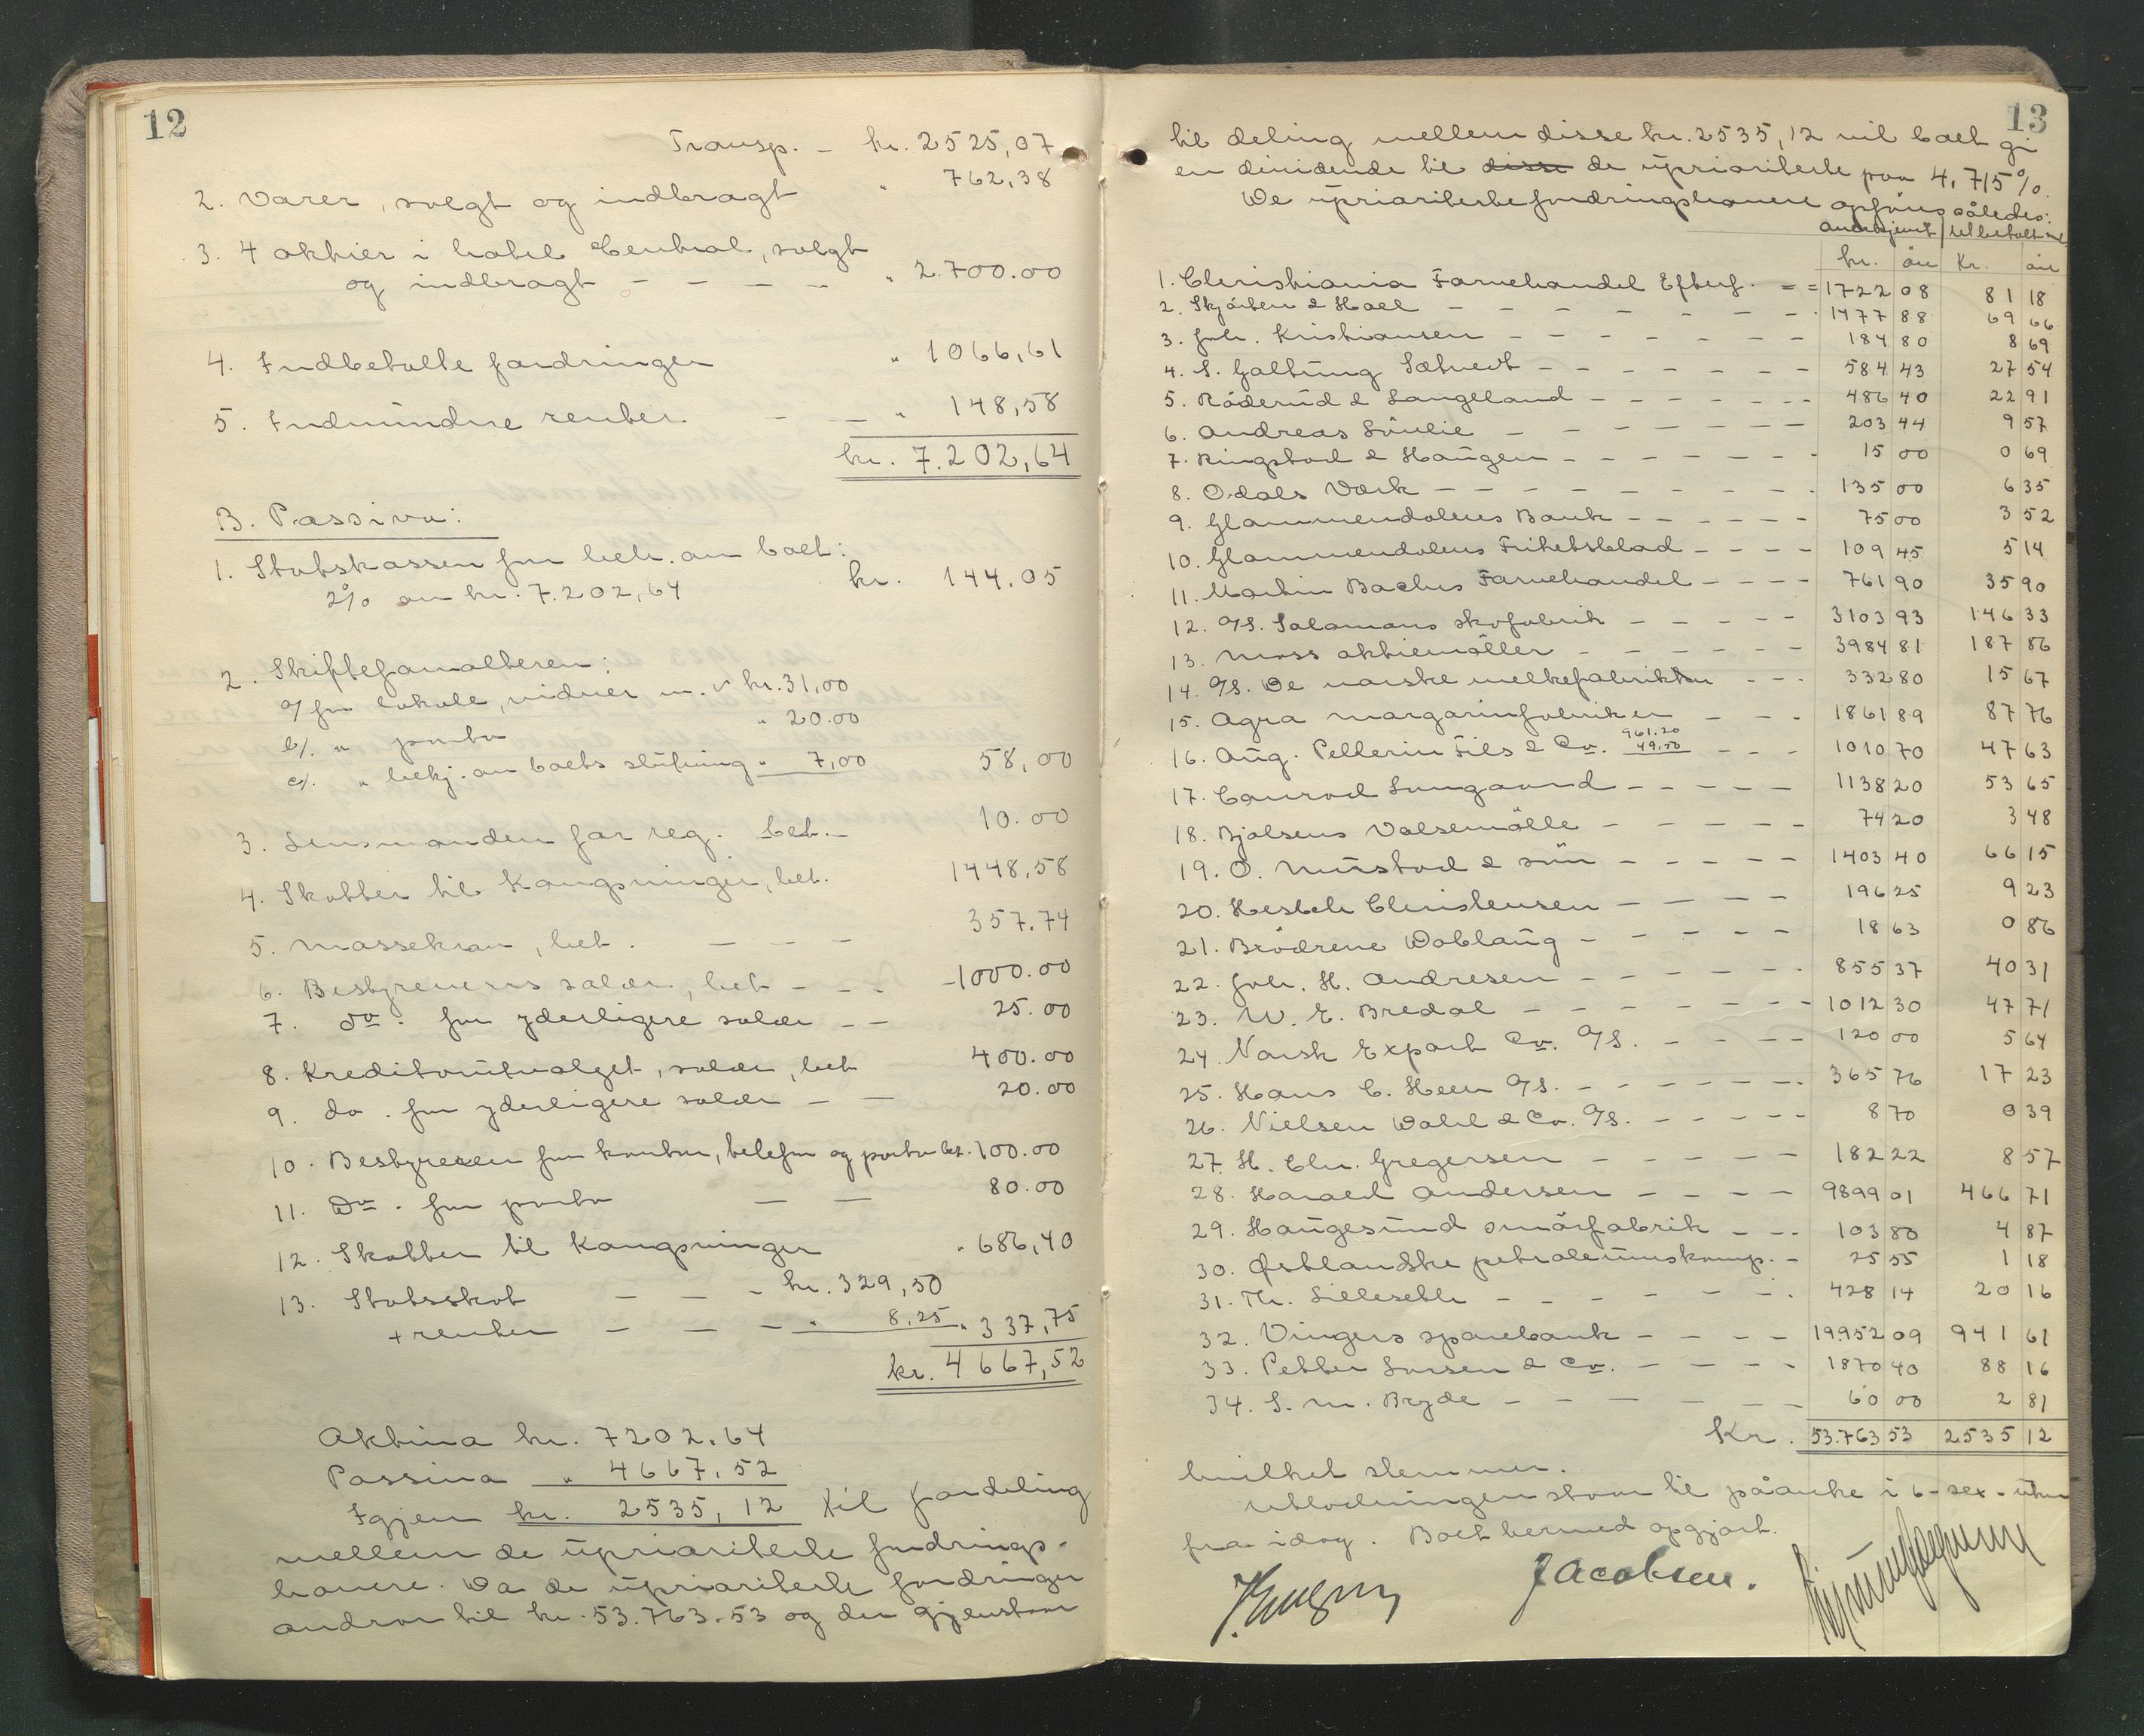 12
Transp. - kr. 2525,07
2. Varer, solgt og indbragt " 762,38
3. 4 aktier i hotel Central, solgt
og indbragt - - - - " 2.700.00
4. Indbetalte fordringer " 1066,61
5. Indvundne renter - - " 148,58
kr. 7.202,64
B. Passiva:
1. Statskassen for beh. av boet:
2% av kr. 7.202,64 kr. 144.05
2. Skifteforvalteren:
a/ for lokale, vidner m.v kr. 31,00
b/. " porto " 20.00
c/. " bekj. av boets slutning " 7,00 58,00
3. Lensmanden for reg. bet.- 10.00
4. Skatter til Kongsvinger, bet. 1448,58
5. Massekrav, bet. - - - 357.74
6. Bestyrerens salær, bet - - - 1000.00
7. do. for yderligere salær - - 25.00
8. Kreditorutvalget, salær, bet 400.00
9. do. for yderligere salær - - 20.00
10. Bestyreren for kontor, telefon og porto bet. 100.00
11. Do. for porto - - 80.00
12. Skatter til Kongsvinger " 686,40
13. Statsskat - - - kr. 329,50
+ renter - - - " 8,25 " 337,75
kr. 4667,52
Aktiva kr. 7202.64
Passiva " 4667.52
Igjen kr. 2535,12 til fordeling
mellem de uprioriterte fordrings-
havere. Da de uprioriterte fordringer
andrar til kr. 53.763.53 og der gjenstaar
13
til deling mellem disse kr. 2535,12 vil boet gi
en dividende til disse de upriorierte paa 4,715%.
De upriorierte fordringshavere opføres således:
Anerkjent | utbetalt med
kr. øre Kr. øre
1. Christiania Farvehandel Efterf. - = 1722 08 81 18
2. Skjørten & Hoel - - - - - - - 1477 88 69 66
3. Joh. Kristiansen - - - - - - 184 80 8 69
4. S. Galtung Sætveit - - - - - - 584 43 27 54
5. Råderud & Langeland - - - - - - 486 40 22 91
6. Andreas Lunlie - - - - - - - 203 44 9 57
7. Ringstad & Haugen - - - - - - 15 00 0 69
8. Odals Værk - - - - - - - - 135 00 6 35
9. Glommendalens Bank - - - - - 75 00 3 52
10. Glommendalens Frihetsblad - - - - 109 45 5 14
11. Martin Bachus Farvehandel - - - - 761 90 35 90
12. A/S. Salamans skofabrik - - - - - 3103 93 146 33
13. Moss aktiemöller - - - - - - 3984 81 187 86
14. A/S. De norske melkefabrikker - - - 332 80 15 67
15. Agra margarinfabriker - - - 1861 89 87 76
16. Aug. Pellerin Fils & Co. 961.20 49.50 - - - 1010 70 47 63
17. Conrad Langaard - - - - - 1138 20 53 65
18. Bjølsens Valsemølle - - - - - 74 20 3 48
19. O. Mustad & sön - - - - - 1403 40 66 15
20. Hesteh Christensen - - - - 196 25 9 23
21. Brödrene Doblaug - - - - - 18 63 0 86
22. Joh. H. Andresen - - - - - - 855 37 40 31
23. W. E. Bredal - - - - - - - 1012 30 47 71
24. Norsk Export Co. A/S. - - - - 120 00 5 64
25. Hans C. Heen A/S. - - - - - - 365 76 17 23
26. Nielsen Wahl & Co. A/S. - - - - - 8 70 0 39
27. H. Chr. Gregersen - - - - - 182 22 8 57
28. Harald Andersen - - - - 9899 01 466 71
29. Haugesund smörfabrik - - - 103 80 4 87
30. Østlandske petroleumskomp. - 25 55 1 18
31. Th. Lilleseth - - - - - - - 428 14 20 16
32. Vingers sparebank - - - - 19952 09 941 61
33. Petter Larsen & Co. - - - - 1870 40 88 16
34. S. M. Bryde - - - - - - 60 00 2 81
Kr. 53.763 53 2535 12
hvilket stemmer.
Utlodningen staar til påanke i 6-sex-uker
fra idag. Boet hermed opgjort.
Jacobsen.